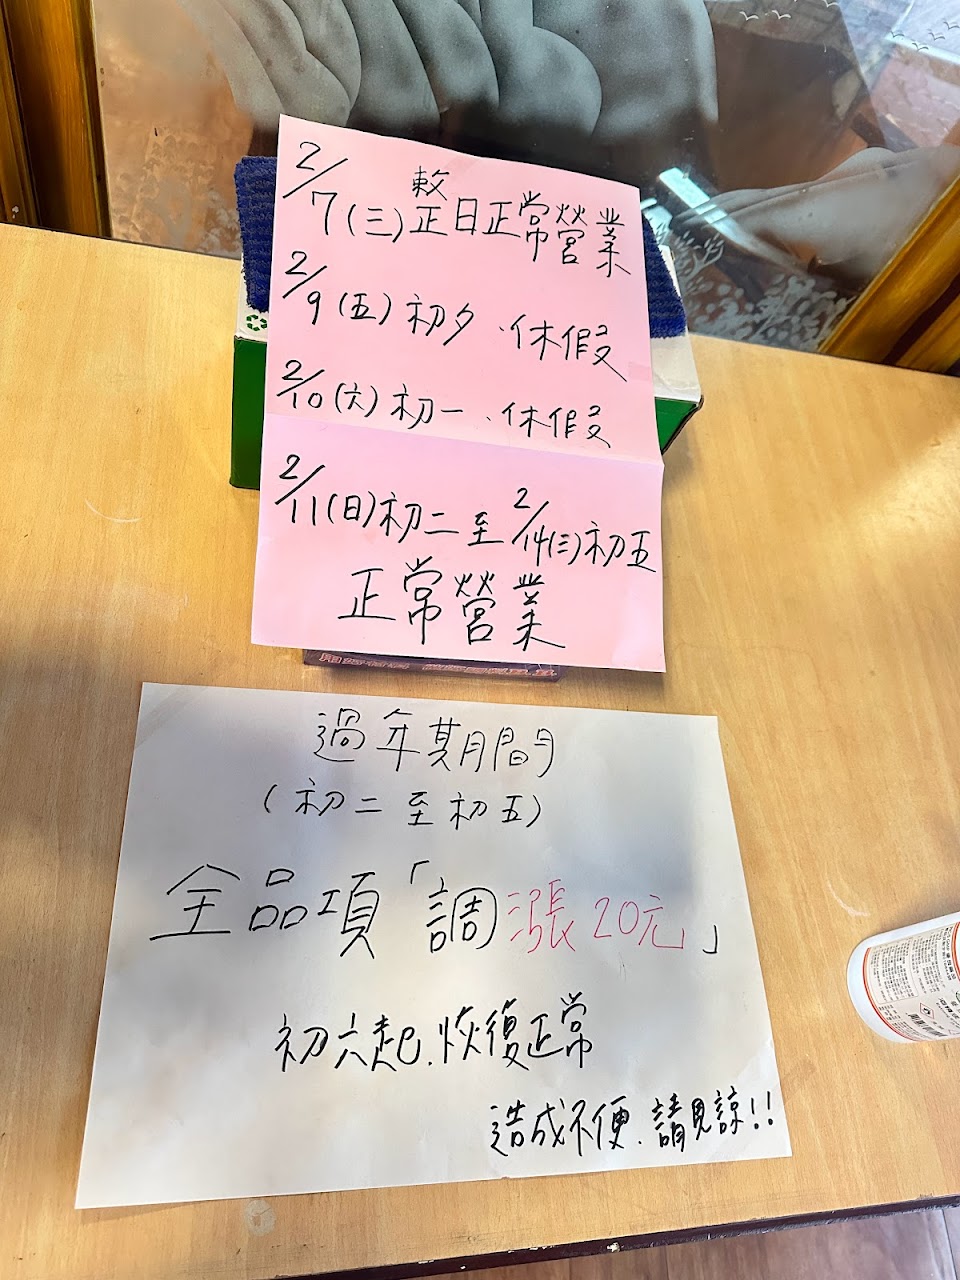 2/7(三)整日正常營業
2/9(五)初夕、休假
2/10(六)初一、休假
2/11(日)初二至2/14(三)初五
正常營業
過年期間
(初二至初五)
全品項「調漲20元」
初六起、恢復正常
造成不便、請見諒!!